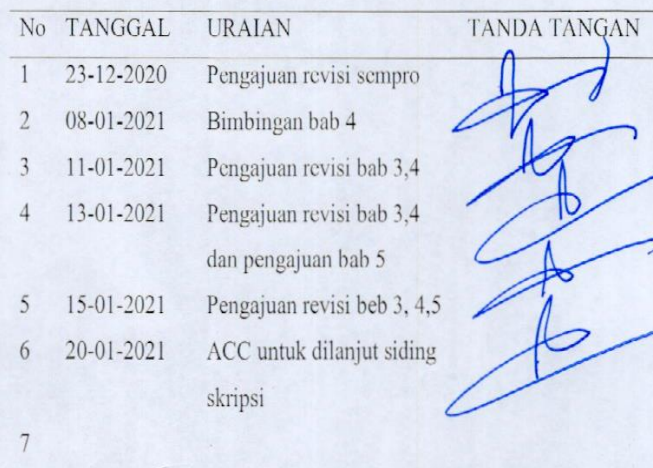 No TANGGAL URAIAN TANDA TANGAN
1 23-12-2020 Pengajuan revisi sempro
2 08-01-2021 Bimbingan bab 4
3 11-01-2021 Pengajuan revisi bab 3,4
4 13-01-2021 Pengajuan revisi bab 3,4
dan pengajuan bab 5
5 15-01-2021 Pengajuan revisi beb 3, 4,5
6 20-01-2021 ACC untuk dilanjut siding
skripsi
7